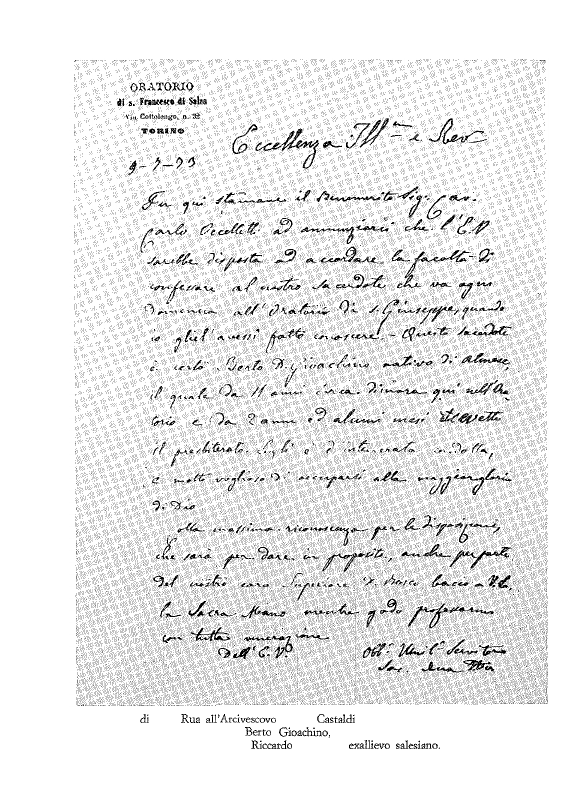 ORATORIO
di s. Francesco di Sales
Via Cottolengo, n. 32
TORINO
Eccellenza Ill.ma e Rev
9-7-73
Fu qui stamane il Benemerito Sig. Cav.
Carlo Occelletti ad annunziarci che l'E.V.
sarebbe disposta ad accordare la facoltà di
confessare al nostro sacerdote che va ogni
Domenica all'Oratorio di S. Giuseppe, quando
io gliel'avessi fatto conoscere. - Questo sacerdote
è certo Berto D. Gioachino nativo di Almese,
il quale da 11 anni circa dimora qui nell'Ora
torio e da 2 anni ed alcuni mesi ricevette
il presbiterato. Egli è d'intemerata condotta,
e molto voglioso di occuparsi alla maggior gloria
di Dio
Colla massima riconoscenza per le disposizioni,
che sarà per dare in proposito, anche per parte
del nostro caro Superiore D. Bosco bacio a V.E.
la Sacra Mano mentre godo professarmi
con tutta venerazione
Dell'E.V.
Obb.o Umil.o Servitore
Sac. Rua
di Rua all'Arcivescovo Castaldi
Berto Gioachino,
Riccardo exallievo salesiano.